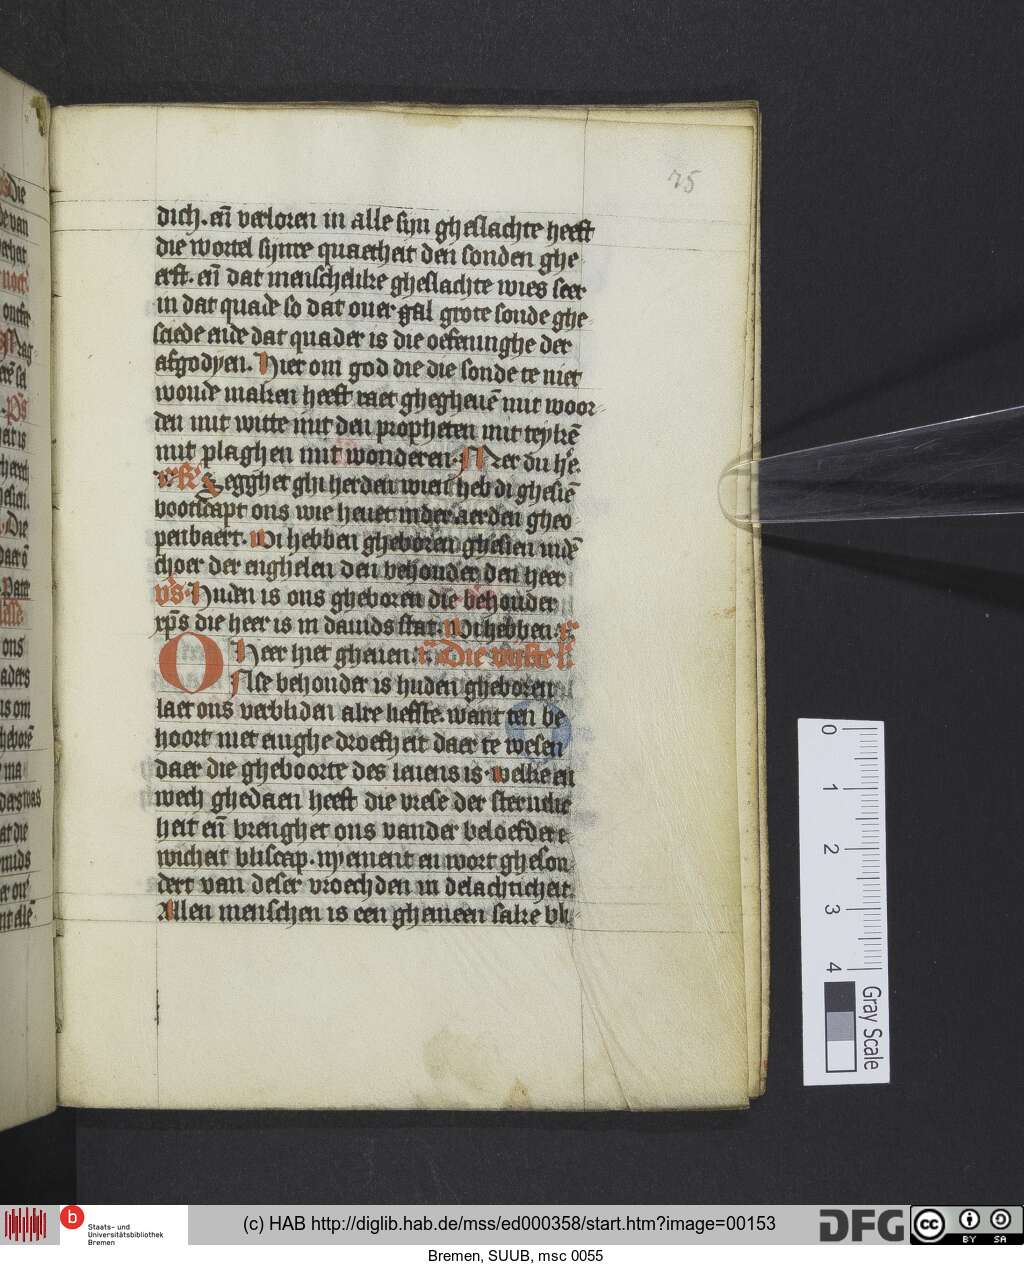 75
dich. en̄ verloren in alle syn gheslachte heeft
die wortel synre quaetheit den sonden ghe
erft. en̄ dat menschelike gheslachte wies seer
in dat quade so dat ouer gal grote sonde ghe-
sciede ende dat quader is die oefeninghe der
afgodyen. Hier om god die die sonde te niet
woude maken heeft raet ghegheuē mit woor-
den mit witte mit den propheten mit teykē
mit plaghen mit wonderen. Mer du he.
Segghet ghi herden wien heb di ghesiē
bootscapt ons wie heuet inder aerden gheo
penbaert. Wi hebben gheboren ghesien indē
choer der enghelen den behouder den heer
vs. Huden is ons gheboren die behouder
xp̄s die heer is in dauids stat. Wi hebben.
O Heer hiet gheuen. Die vijfte l.
Nse behouder is huden gheboren
laet ons verbliden alre liefste. want ten be
hoort niet enighe droefheit daer te wesen
daer die gheboorte des leuens is. welke en
wech ghedaen heeft die vrese der steruelic
heit en̄ brenghet ons vander beloefder e
wicheit bliscap. nyement en wort gheson
dert van deser vroechden in delachticheit.
Allen menschen is een ghemeen sake bli-
0 1 2 3 4
Gray Scale
b Staats- und
Universitätsbibliothek
Bremen
(c) HAB http://diglib.hab.de/mss/ed000358/start.htm?image=00153
DFG
cc BY SA
Bremen, SUUB, msc 0055